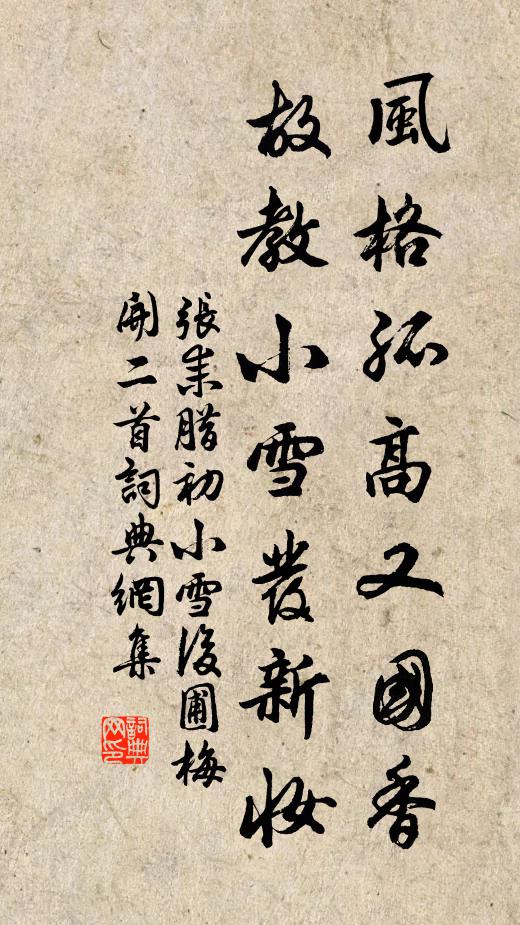 風格孤高又國香
故教小雪發新妝
張耒臘初小雪後圃梅
開二首詞典網集
詞典
网印